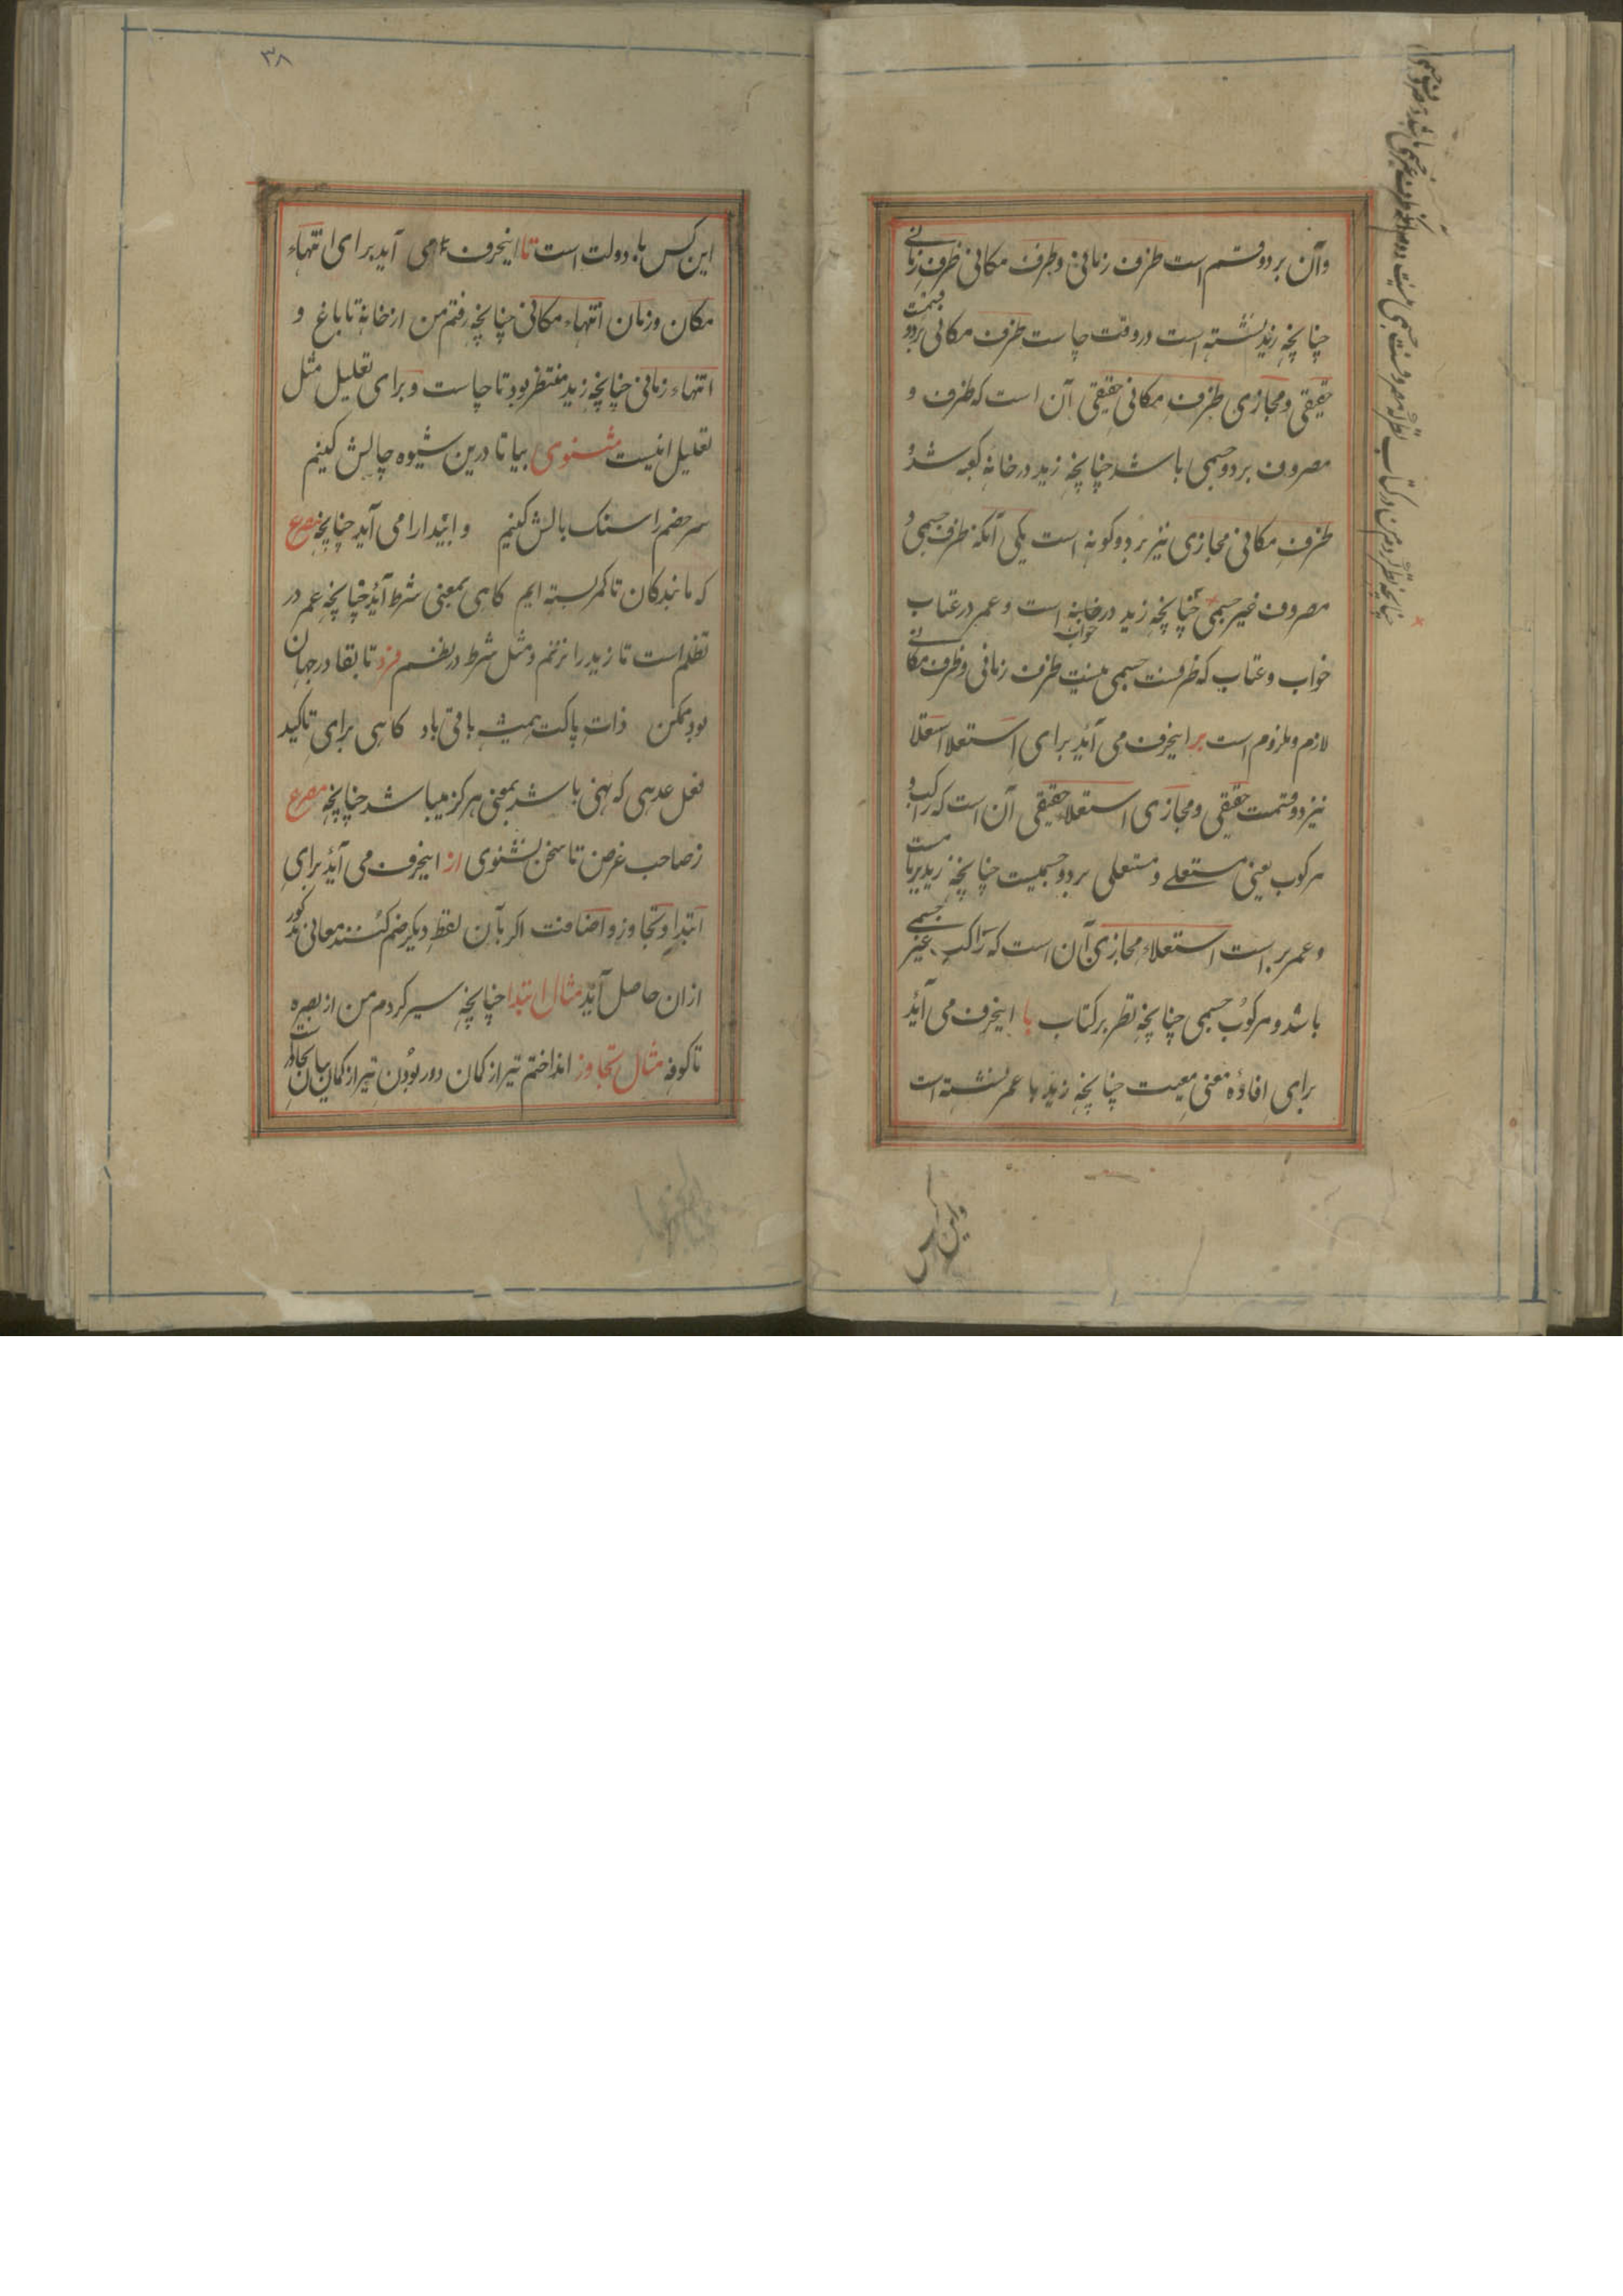 وآن بر دو قسم است ظرف زمانی و ظرف مکانی ظرف زمانی
چنانچه زید نشسته است در وقت چاست ظرف مکانی بر دو قسمت
حقیقی و مجازی ظرف مکانی حقیقی آن است که ظرف و
مصروف بر دو جسمی باشد چنانچه زید در خانهٔ کعبه شد و
ظرف مکانی مجازی نیز بر دو کونه است یکی آنکه ظرف جسمی و
مصروف غیر جسمی چنانچه زید در خانه است و عمر در عتاب
خواب
خواب و عتاب که ظرفست جسمی نیست ظرف زمانی و ظرف مکانی
لازم و ملزوم است بر اینحرف می آید برای استعلا استعلا
نیز دو قسمت حقیقی و مجازی استعلاء حقیقی آن است که راکب و
مرکوب یعنی مستعلے و مستعلی بر دو جسمیست چنانچه زید بر بامست
و عمر بر است استعلاء مجازی آن است که راکب غیر جسمے
باشد و مرکوب جسمی چنانچه نظر بر کتاب با اینحرف می آید
برای افادهٔ معنی معیت چنانچه زید با عمر نشسته است
این کس
این کس با دولت است تا اینحرف می آید برای انتهاء
مکان و زمان انتهاء مکانی چنانچه رفتم من از خانه تا باغ و
انتهاء زمانی چنانچه زید منتظر بود تا چاست و برای تعلیل مثل
تعلیل اینست مثنوی بیا تا درین شیوه چالش کنیم
سر خصم را سنک بالش کنیم و ابتدا را می آید چنانچه مصرع
که ما بندکان تا کمر بسته ایم کاهی بمعنی شرط آید چنانچه عمر در
تظلم است تا زید را نزنم و مثل شرط در نظم فرد تا بقا در جهان
بود ممکن ذات پاکت همیشه باقی باد کاهی برای تاکید
فعل عدمی که نهی باشد بمعنی هرکز میباشد چنانچه مصرع
ز صاحب غرض تا سخن نشنوی از اینحرف می آید برای
ابتدا و تجاوز و اضافت اکر بآن لفظ دیکر ضم کنند معانی مذکور
ازان حاصل آید مثال ابتدا چنانچه سیر کردم من از بصره
تا کوفه مثال تجاوز انداختم تیر از کمان دور بودن تیر از کمان بیان تجاوز است
۳۸